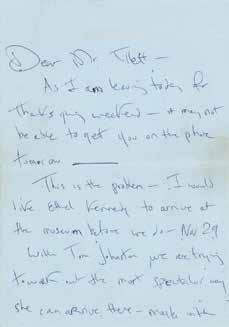 Dear Mr. Tillett —
As I am leaving today for
Thanksgiving weekend — & may not
be able to get you on the phone
tomorrow ———
This is the problem — I would
like Ethel Kennedy to arrive at
the museum before we do — Nov 29
With Tom Johnston we are trying
to work out the most spectacular way
she can arrive there — maybe with